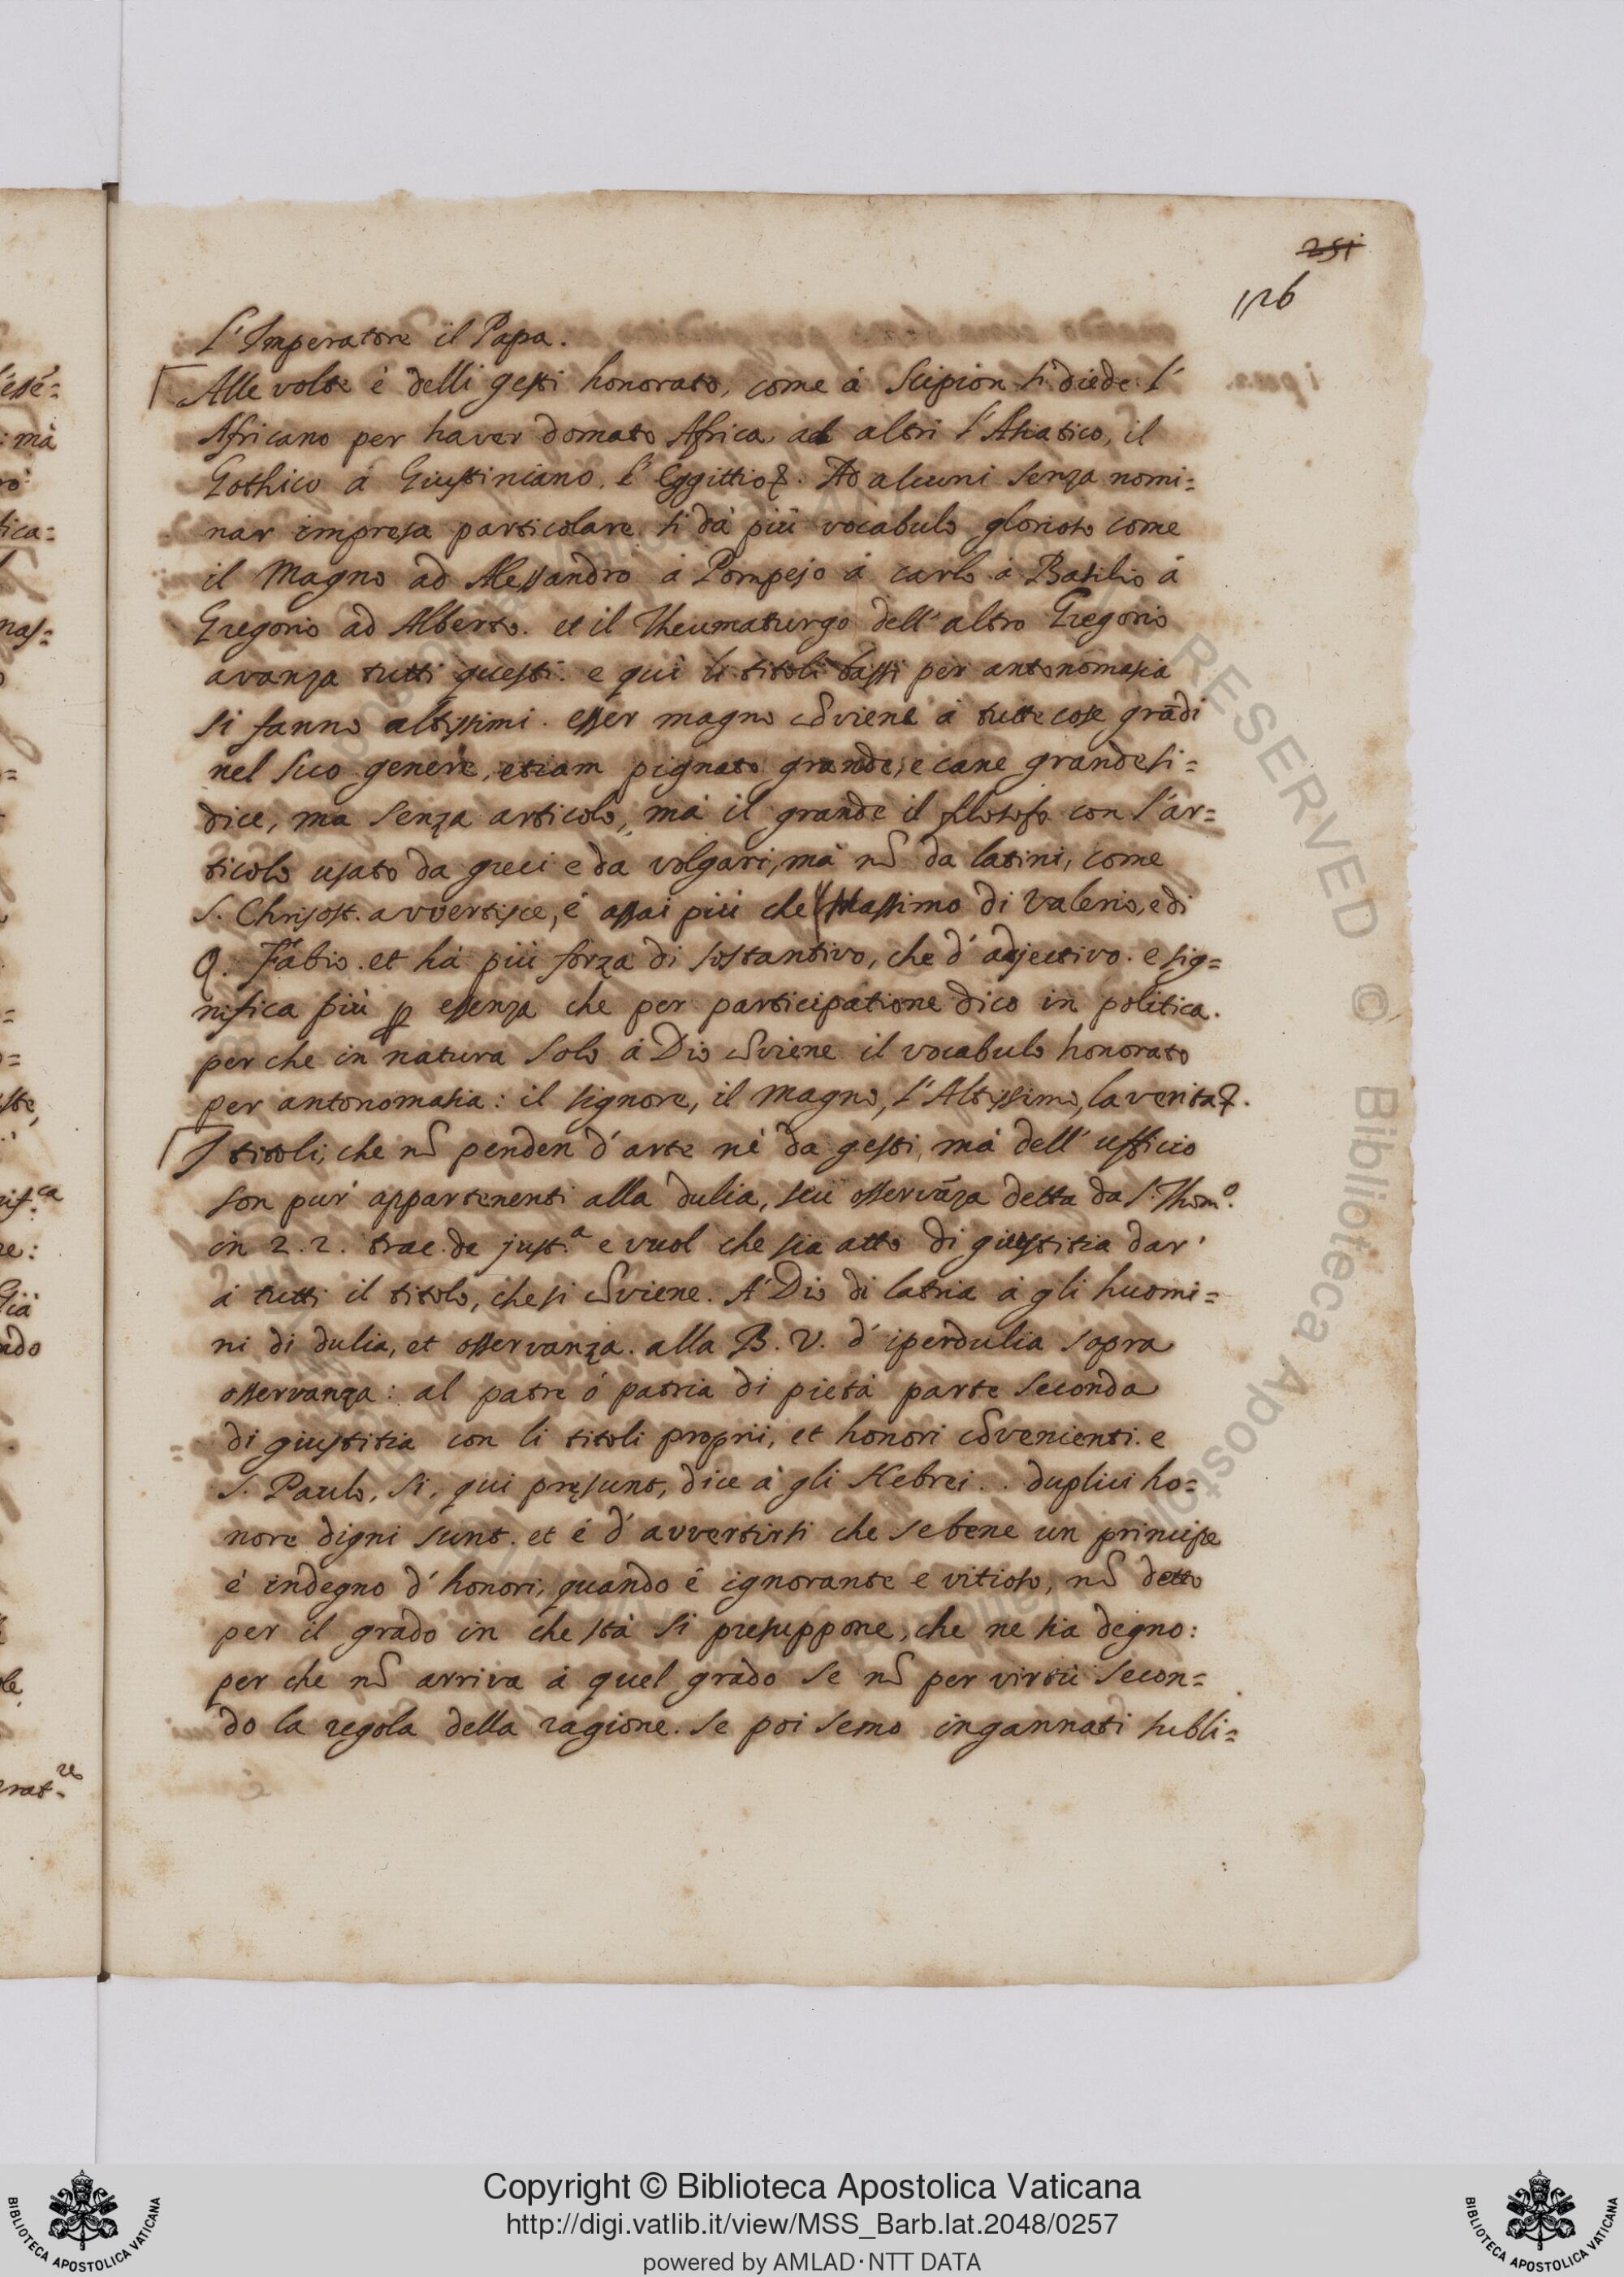 251
126
L'Imperatore il Papa.
Alle volte è delli gesti honorato, come à Scipion si diede l'
Africano per haver domato Africa, ad altri l'Asiatico, il
Gothico à Giustiniano. l'Eggittio &. Ad alcuni senza nomi=
nar impresa particolare si dà più vocabulo glorioso come
il Magno ad Alessandro à Pompejo à carlo à Basilio à
Gregorio ad Alberto. et il Theumaturgo dell'altro Gregorio
avanza tutti questi. e quì li titoli bassi per antonomasia
si fanno altissimi. esser magno cõviene à tutte cose grãdi
nel suo genere, etiam pignato grande, e cane grande si=
dice, ma senza articolo, mà il grande il filosofo con l'ar=
ticolo usato da greci e da volgari, mà nõ da latini, come
S. Chrisost. avvertisce, è assai più che Massimo di Valerio, e di
Q. Fabio. et hà più forza di sostantivo, che d'adjectivo. e sig=
nifica più ꝑ essenza che per participatione dico in politica.
per che in natura solo à Dio cõviene il vocabulo honorato
per antonomasia: il signore, il Magno, l'Altissimo, la verita &.
I titoli, che nõ penden d'arte nè da gesti, mà dell'ufficio
son pur' appartenenti alla dulia, seù osservãza detta da S. Thom.º
in 2. 2. trac. de just.ª e vuol che sia atto di giustitia dar'
à tutti il titolo, che si cõviene. A' Dio di latria à gli huomi=
ni di dulia, et osservanza. alla B. V. d'iperdulia sopra
osservanza: al patre ò patria di pietà parte seconda
di giustitia con li titoli proprii, et honori cõvenienti. e
S. Paulo, si, qui pręsunt, dice à gli Hebrei.. duplici ho=
nore digni sunt. et è d'avvertirsi che se bene un principe
è indegno d'honori, quando è ignorante e vitioso, nõ detto
per il grado in che stà si presuppone, che ne sia degno:
per che nõ arriva à quel grado se nõ per virtù secon=
do la regola della ragione. se poi semo ingannati subli=
RESERVED © Biblioteca Apostolica Vaticana
Copyright © Biblioteca Apostolica Vaticana
http://digi.vatlib.it/view/MSS_Barb.lat.2048/0257
powered by AMLAD·NTT DATA
BIBLIOTECA APOSTOLICA VATICANA
BIBLIOTECA APOSTOLICA VATICANA